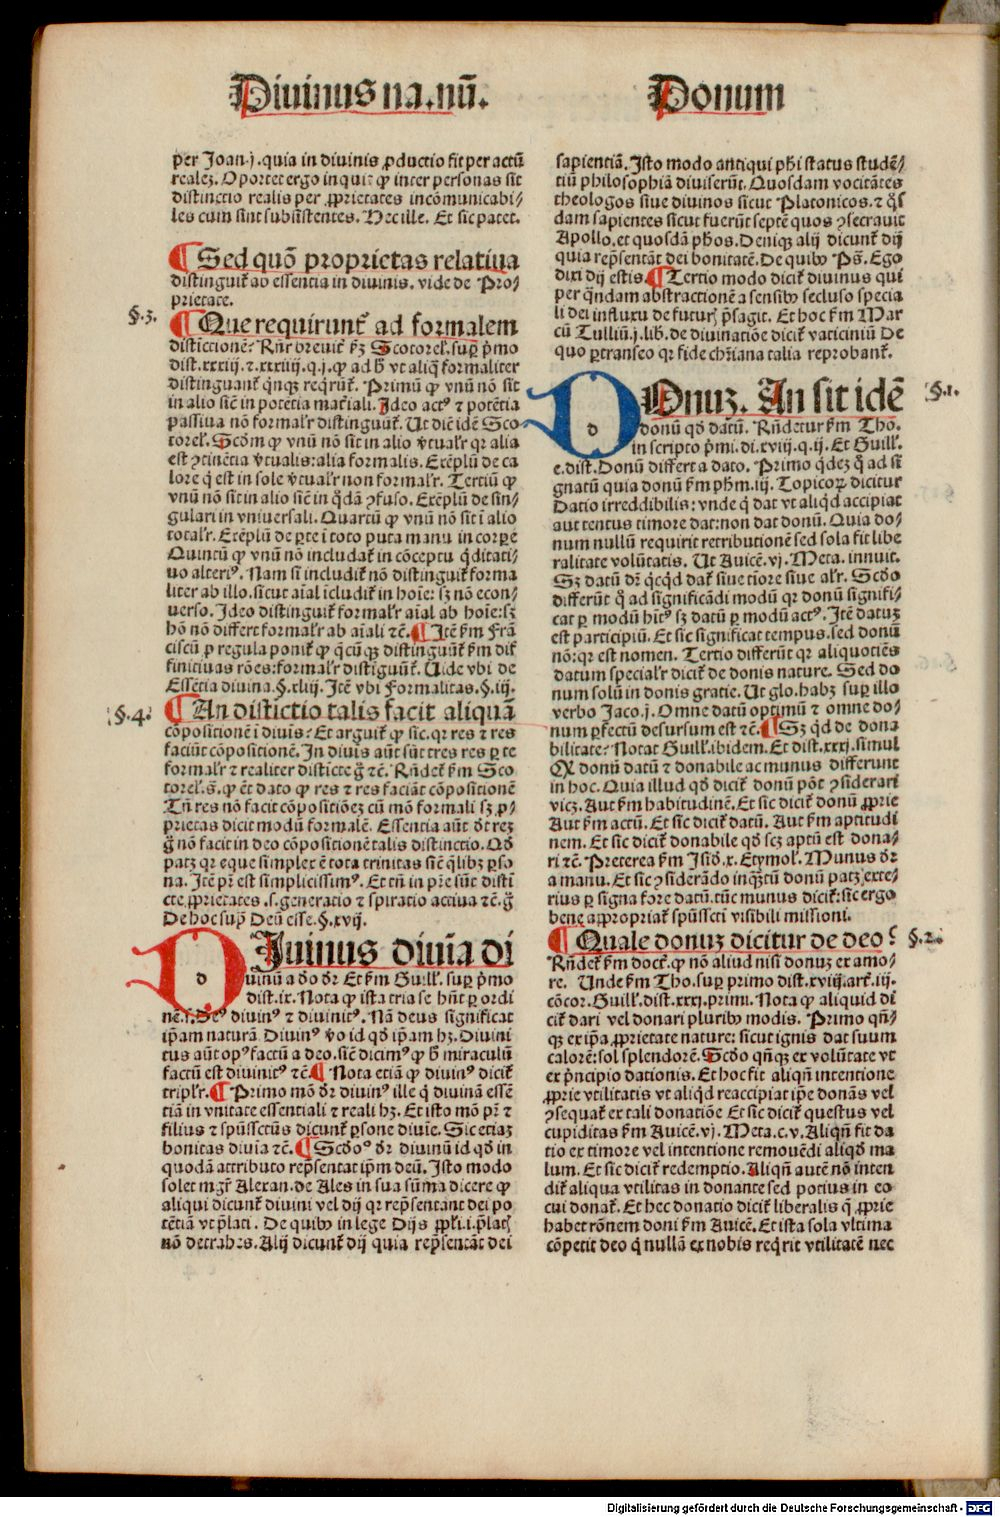 Diuinus na.nū.
Donum
per Joan.j.quia in diuinis ꝓductio fit per actū
realeꝫ. Oportet ergo inquit ꝙ inter personas sit
distinctio realis per ꝓprietates incōmunicabi-
les cum sint subsistentes. Hec ille. Et sic patet.
¶ Sed quō proprietas relatiua
distinguit̄ ab essentia in diuinis. vide de Pro-
prietate.
§.3.
¶ Que requirunt̄ ad formalem
distictionē? Rn̄r breuit̄ ẜm Scotorel̄. sup p̄mo
dist.xxxiij.⁊.xxxiiij.q.j.ꝙ ad h̄ vt aliq̄ formaliter
distinguant̄ qnqꝫ reqrūt̄. Primū ꝙ vnū nō sit
in alio sic̄ in potētia mat̄iali. Ideo act⁹ ⁊ potētia
passiua nō formal̄r distinguūt̄. Ut dic̄ idē Sco-
torel̄. Scd̄m ꝙ vnū nō sit in alio v̄tual̄r qꝛ alia
est ꝯtinētia v̄tualis:alia formalis. Exēplū de ca
lore q̄ est in sole v̄tual̄r non formal̄r. Tertiū ꝙ
vnū nō sit in alio sic̄ in q̄dā ꝯfuso. Exēplū de sin-
gulari in vniuersali. Quartū ꝙ vnū nō sit ī alio
total̄r. Exēplū de ꝑte ī toto puta manu in corꝑe
Quintū ꝙ vnū nō includat̄ in cōceptu q̄ditati-
uo alteri⁹. Nam si includit̄ nō distinguit̄ forma
liter ab illo. sicut aīal īcludit̄ in hoīe: sꝫ nō econ-
uerso. Ideo distinguit̄ formal̄r aīal ab hoīe:sꝫ
hō nō differt formal̄r ab aīali ⁊c̄. ¶ Itē ẜm Frā
ciscū ꝓ regula ponit̄ ꝙ q̄cūqꝫ distinguūt̄ ẜm dif
finitiuas rōes:formal̄r distīguūt̄. Uide vbi de
Essētia diuina.§.xliij. Itē vbi Formalitas.§.iij.
§.4.
¶ An distictio talis facit aliquā
cōpositionē ī diuis? Et arguit̄ ꝙ sic.qꝛ res ⁊ res
faciūt cōpositionē. In diuis aūt sūt tres res ꝑ te
formal̄r ⁊ realiter disticte g̊ ⁊c̄. Rn̄det̄ ẜm Sco
torel̄.s. ꝙ et̄ dato ꝙ res ⁊ res faciāt cōpositionē
Tn̄ res nō facit cōpositiōeꝫ cū mō formali sꝫ ꝓ-
prietas dicit modū formalē. Essentia aūt d̄t reꝫ
g̊ nō facit in deo cōpositionē talis distinctio. Qd̄
patꝫ qꝛ eque simplex ē tota trinitas sic̄ q̄libꝫ ꝑso
na. Itē pr̄ est simplicissim⁹. Et tn̄ in pr̄e sūt disti
cte ꝓprietates .s.generatio ⁊ spiratio actiua ⁊c̄.g̊
De hoc sup̄ Deū esse.§.xvij.
d
DIuinus diuīa di
uinū a dō dr̄ Et ẜm Guill̄. sup p̄mo
dist.ix. Nota ꝙ ista tria se hn̄t ꝑ ordi
nē.s.De⁹ diuin⁹ ⁊ diuinit⁹. Nā deus significat
ip̄am naturā Diuin⁹ v̄o id qd̄ ip̄am hꝫ. Diuini
tus aūt op⁹ factū a deo. sic̄ dicim⁹ ꝙ h̄ miraculū
factū est diuinit⁹ ⁊c̄ ¶ Nota etiā ꝙ diuin⁹ dicit̄
tripl̄r. ¶ Primo mō dr̄ diuin⁹ ille q̄ diuinā essē
tiā in vnitate essentiali ⁊ reali hꝫ. Et isto mō pr̄ ⁊
filius ⁊ spūssctūs dicunt̄ ꝑsone diuīe. Sic etiaꝫ
bonitas diuīa ⁊c̄. ¶ Scd̄o⁹ dr̄ diuinū id qd̄ in
quodā attributo rep̄sentat ip̄m deū. Isto modo
solet mgr̄ Alexan.de Ales in sua sūma dicere ꝙ
aliqui dicunt̄ diuini vel dij qꝛ rep̄sentant dei po
tētiā vt p̄lati. De quibꝰ in lege Dijs
nō detrahes. Alij dicunt̄ dij quia rep̄sentāt dei
sapientiā. Isto modo antiqui ph̄i status studē-
tiū philosophiā diuiserūt. Quosdam vocitātes
theologos siue diuinos sicut Platonicos. ⁊ qs̄
dam sapientes sicut fuerūt septē quos ꝯsecrauit
Apollo.et quosdā ph̄os. Deniqꝫ alij dicunt̄ dij
quia rep̄sentāt dei bonitatē. De quibꝰ Ps̄. Ego
dixi dij estis. ¶ Tertio modo dicit̄ diuinus qui
per q̄ndam abstractionē a sensibꝰ secluso specia
li dei influxu de futurꝭ p̄sagit. Et hoc ẜm Mar
cū Tulliū.j.lib̄. de diuinatiōe dicit̄ vaticiniū De
quo ꝑtranseo qꝛ fide ch̄riana talia reprobant̄.
§.1.
d
DOnuꝫ. An sit idē
donū qd̄ datū. Rn̄detur ẜm Tho.
in scripto p̄mi.di.xviij.q.ij. Et Guill̄.
e.dist. Donū differt a dato. Primo q̄deꝫ q̄ ad si
gnatū quia donū ẜm ph̄m.iij. Topicoꝝ dicitur
Datio irreddibilis: vnde q̄ dat vt aliqd̄ accipiat
aut tentus timore dat:non dat donū. Quia do-
num nullū requirit retributionē sed sola fit libe
ralitate volūtatis. Ut Auicē.vj. Meta. innuit.
Sꝫ datū dr̄ qcqd̄ dat̄ siue tiore siue al̄r. Scd̄o
differūt q̄ ad significādi modū qꝛ donū signifi-
cat ꝑ modū hīt⁹ sꝫ datū ꝑ modū act⁹. Itē datuꝫ
est participiū. Et sic significat tempus.sed donū
nō:qꝛ est nomen. Tertio differūt qꝛ aliquotiēs
datum special̄r dicit̄ de donis nature. Sed do
num solū in donis gratie. Ut glo.habꝫ sup illo
verbo Jaco.j. Omne datū optimū ⁊ omne do-
num ꝑfectū desursum est ⁊c̄. ¶ Sꝫ qd̄ de dona
bilitate? Notat Guill̄.ibidem. Et dist.xxxj.simul
Qꝫ donū datū ⁊ donabile ac munus differunt
in hoc. Quia illud qd̄ dicit̄ donū pōt ꝯsiderari
vicꝫ. Aut ẜm habitudinē. Et sic dicit̄ donū ꝓprie
Aut ẜm actū. Et sic dicit̄ datū. Aut ẜm aptitudi
nem. Et sic dicit̄ donabile qd̄ scꝫ aptū est dona-
ri ⁊c̄. Preterea ẜm Isid̄.x. Etymol̄. Munus dr̄
a manu. Et sic ꝯsiderādo inqꝫtū donū patꝫ exte-
rius ꝑ signa fore datū.tūc munus dicit̄:sic ergo
bene appropriat̄ spūsscti visibili missioni.
¶ Quale donuꝫ dicitur de deo?
§.2.
Rn̄det̄ ẜm doct̄. ꝙ nō aliud nisi donuꝫ ex amo-
re. Unde ẜm Tho.sup primo dist.xviij.art̄.iij.
cōcor. Guill̄.dist.xxxj.primi. Nota ꝙ aliquid di
cit̄ dari vel donari pluribꝰ modis. Primo qn̄-
qꝫ ex ip̄a ꝓprietate nature: sicut ignis dat suum
calorē:sol splendorē. Scd̄o qn̄qꝫ ex volūtate vt
ex p̄ncipio dationis. Et hoc fit aliqn̄ intentione
ꝓprie vtilitatis vt aliqd̄ reaccipiat ip̄e donās vel
ꝯsequat̄ ex tali donatiōe Et sic dicit̄ questus vel
cupiditas ẜm Auicē.vj. Meta.c.v. Aliqn̄ fit da
tio ex timore vel intentione remouēdi aliqd̄ ma
lum. Et sic dicit̄ redemptio. Aliqn̄ autē nō inten
dit̄ aliqua vtilitas in donante sed potius in eo
cui donat̄. Et hec donatio dicit̄ liberalis q̄ ꝓprie
habet rōnem doni ẜm Auicē. Et ista sola vltima
cōpetit deo q̄ nullā ex nobis reqrit vtilitatē nec
Digitalisierung gefördert durch die Deutsche Forschungsgemeinschaft - DFG